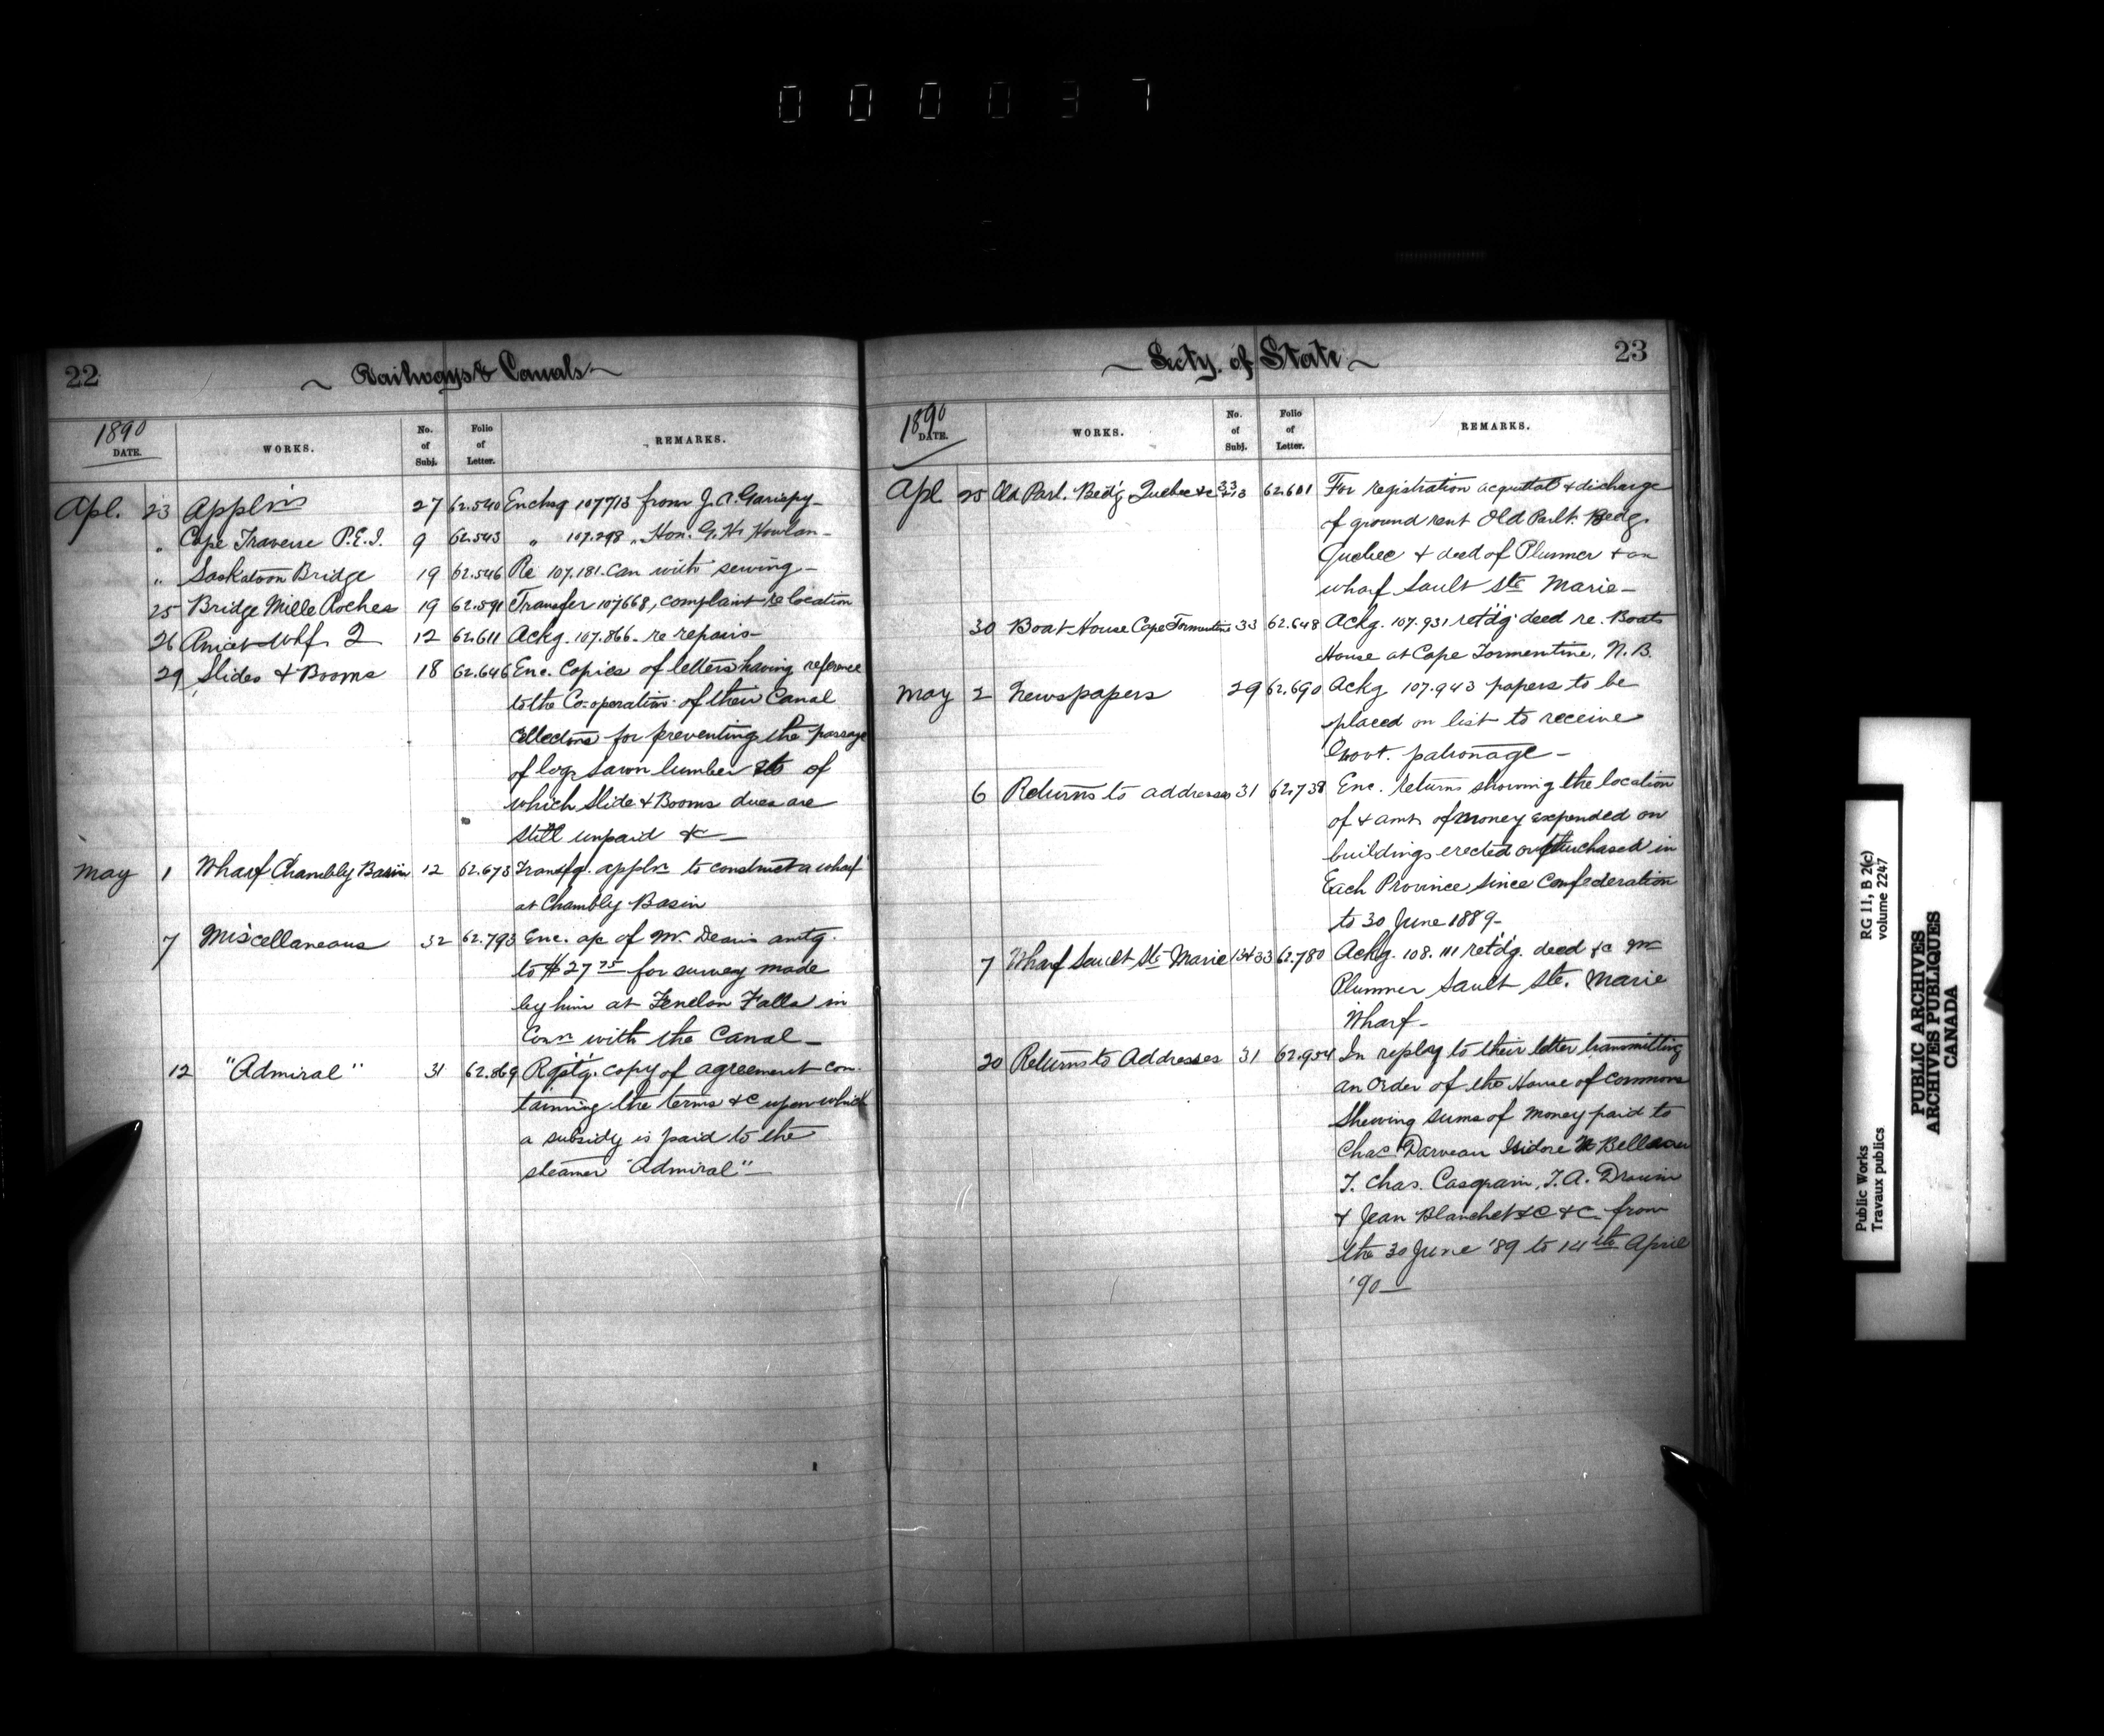 000037
22
Railways & Canals
1890
DATE.
WORKS.
No. of Subj.
Folio of Letter.
REMARKS.
Apl. 23 Appln's 27 62.540 Enclsg 107713 from J. A. Gariepy
" Cape Traverse P.E.I. 9 62.543 " 107.298 " Hon. G. H. Howlan
" Saskatoon Bridge 19 62.546 Re 107.181. Can with sewing
25 Bridge Mille Roches 19 62.591 Transfer 107668, complaint re location
26 Anicet Whf. Q 12 62.611 Ackg. 107.866. re repairs
29 Slides & Booms 18 62.646 Enc. Copies of letters having reference
to the Co-operation of their Canal
Collectors for preventing the passage
of logs sawn lumber &c of
which Slide & Booms dues are
still unpaid &c
May 1 Wharf Chambly Basin 12 62.673 Transfg. appln to construct a wharf
at Chambly Basin
7 Miscellaneous 32 62.793 Enc. a/c of Mr. Deans amtg.
to $27 75 for survey made
by him at Fenelon Falls in
Con. with the Canal
12 "Admiral" 31 62.869 Rqstg. copy of agreement con-
tainning the terms &c upon which
a subsidy is paid to the
steamer "Admiral"
23
Secty. of State
1890
DATE.
WORKS.
No. of Subj.
Folio of Letter.
REMARKS.
Apl 25 Old Parl. Bedg Quebec &c 33 62.601 For registration acquittal & discharge
of ground rent Old Parlt. Bedg.
Quebec & deed of Plummer & on
wharf Sault Ste Marie
30 Boat House Cape Tormentine 33 62.648 Ackg. 107.931 retdg deed re. Boats
House at Cape Tormentine, N.B.
May 2 Newspapers 29 62.690 Ackg 107.943 papers to be
placed on list to receive
Govt. patronage
6 Returns to addresses 31 62.738 Enc. returns showing the location
of & amt. of money expended on
buildings erected or purchased in
Each Province, since Confederation
to 30 June 1889
7 Wharf Sault Ste Marie 33 62.780 Ackg. 108.111 retdg. deed &c Mr
Plummer Sault Ste. Marie
Wharf
20 Returns to Addresses 31 62.954 In reply to their letter transmitting
an order of the House of Commons
Shewing sums of money paid to
Chas Darveau Isidore N Belleau
T. Chas. Casgrain, F. A. Drouin
& Jean Blanchet &c &c from
the 30 June '89 to 14th April
'90
Public Works
Travaux publics
RG 11, B 2(c)
volume 2247
PUBLIC ARCHIVES
ARCHIVES PUBLIQUES
CANADA